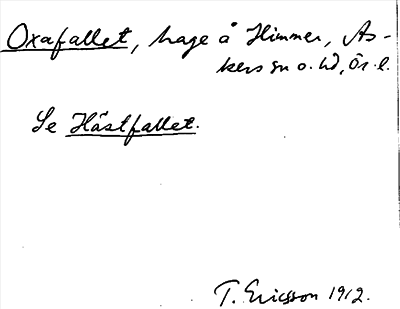 Oxafallet, hage å Himmer, As-
kers sn o. hd, Ör. l.
Se Hästfallet.
T. Ericsson 1912.